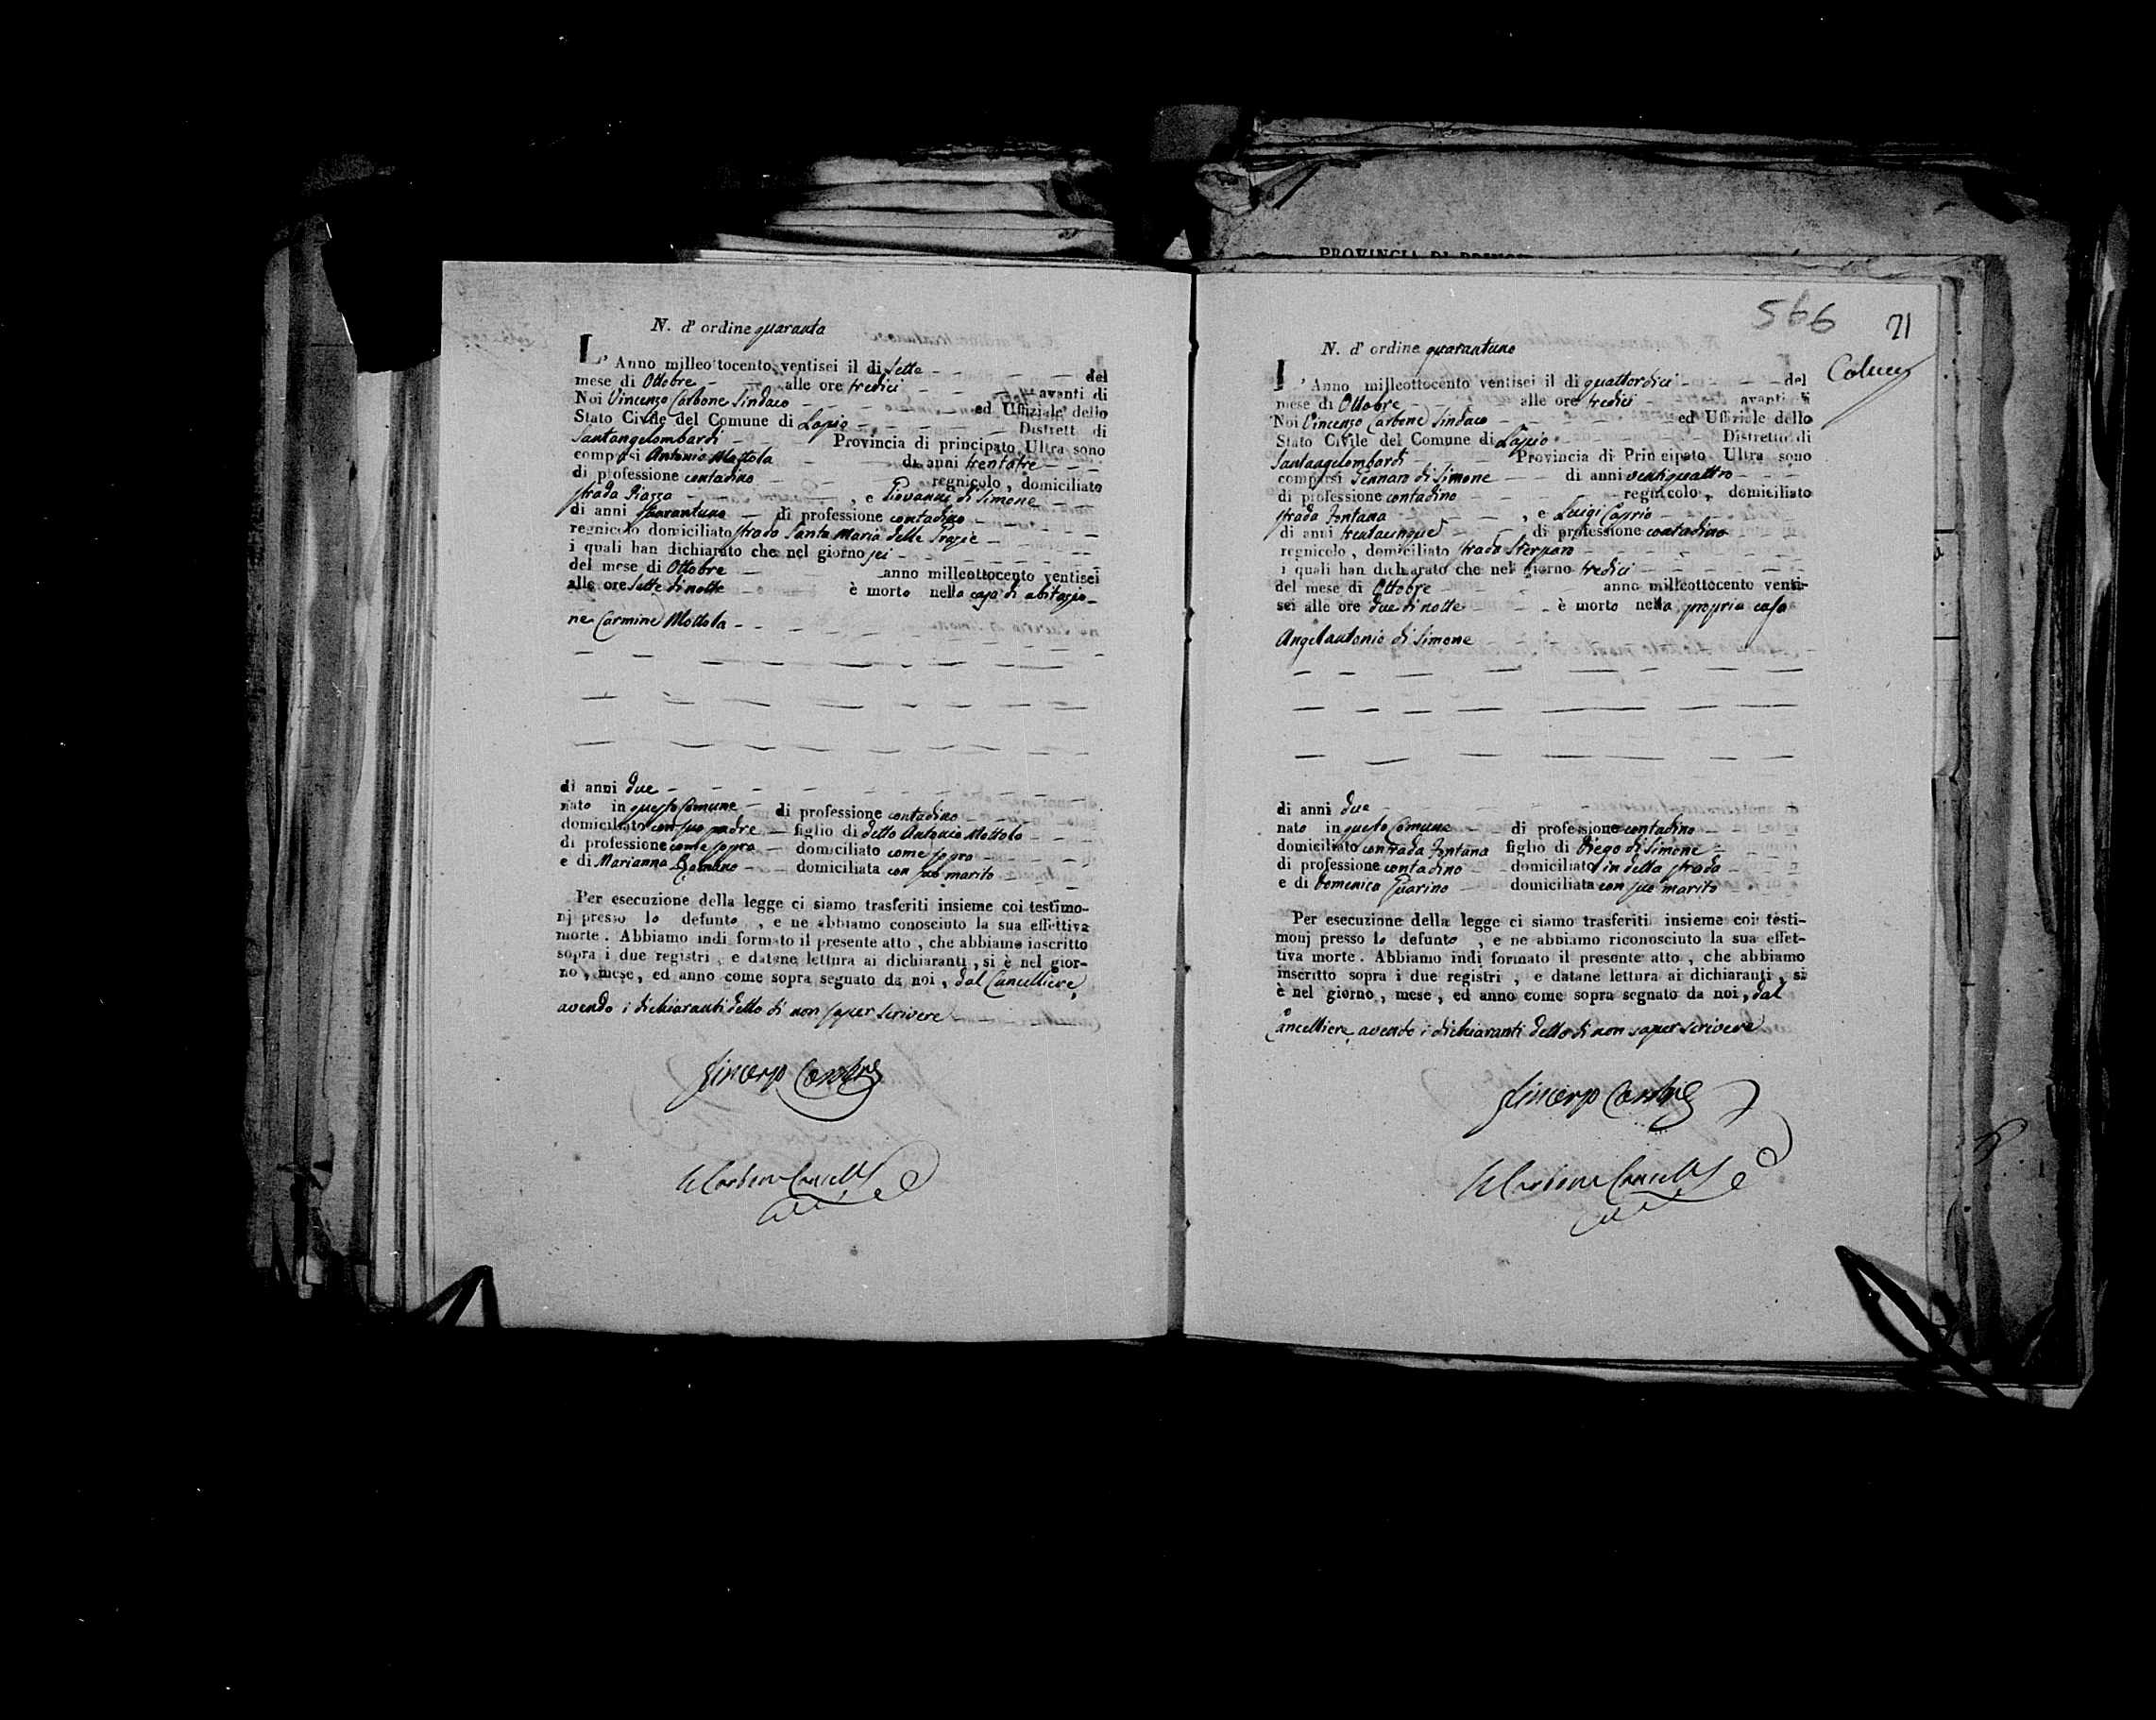 PROVINCIA DI PRINCI
N. d' ordine quaranta
L' Anno milleottocento ventisei il di sette del
mese di Ottobre alle ore tredici avanti di
Noi Vincenzo Carbone Sindaco ed Uffiziale dello
Stato Civile del Comune di Lapio Distrett di
Santangelombardi Provincia di principato Ultra sono
comparsi Antonio Mottola di anni trentatre
di professione contadino regnicolo, domiciliato
strada Piazza , e Giovanni di Simone
di anni quarantuno di professione contadino
regnicolo domiciliato strada Santa Maria delle Grazie
i quali han dichiarato che nel giorno sei
del mese di Ottobre anno milleottocento ventisei
alle ore sette di notte è morto nella casa di abitazio-
ne Carmine Mottola
di anni due
nato in questo Comune di professione contadino
domiciliato con suo padre figlio di detto Antonio Mottola
di professione come sopra domiciliato come sopra
e di Marianna Romano domiciliata con suo marito
Per esecuzione della legge ci siamo trasferiti insieme coi testimo-
nj presso lo defunto , e ne abbiamo conosciuto la sua effettiva
morte. Abbiamo indi formato il presente atto, che abbiamo inscritto
sopra i due registri, e datane lettura ai dichiaranti, si è nel gior-
no, mese, ed anno come sopra segnato da noi, dal Cancelliere,
avendo i dichiaranti detto di non saper scrivere
Vincenzo Carbone
Carbone Cancell
566 21
N. d' ordine quarantuno
L' Anno milleottocento ventisei il di quattordici del
mese di Ottobre alle ore tredici avanti di
Noi Vincenzo Carbone Sindaco ed Uffiziale dello
Stato Civile del Comune di Lapio Distretto di
Santangelombardi Provincia di Principato Ultra sono
comparsi Gennaro di Simone di anni ventiquattro
di professione contadino regnicolo, domiciliato
strada Fontana , e Luigi Caprio
di anni trentacinque di professione contadino
regnicolo, domiciliato strada Sterparo
i quali han dichiarato che nel giorno tredici
del mese di Ottobre anno milleottocento venti-
sei alle ore due di notte è morto nella propria casa
Angelantonio di Simone
di anni due
nato in questo Comune di professione contadino
domiciliato contrada Fontana figlio di Diego di Simone
di professione contadino domiciliato in detta strada
e di Domenica Guarino domiciliata con suo marito
Per esecuzione della legge ci siamo trasferiti insieme coi testi-
monj presso lo defunto , e ne abbiamo riconosciuto la sua effet-
tiva morte. Abbiamo indi formato il presente atto, che abbiamo
inscritto sopra i due registri, e datane lettura ai dichiaranti, si
è nel giorno, mese, ed anno come sopra segnato da noi, dal
Cancelliere, avendo i dichiaranti detto di non saper scrivere
Vincenzo Carbone
Carbone Cancell